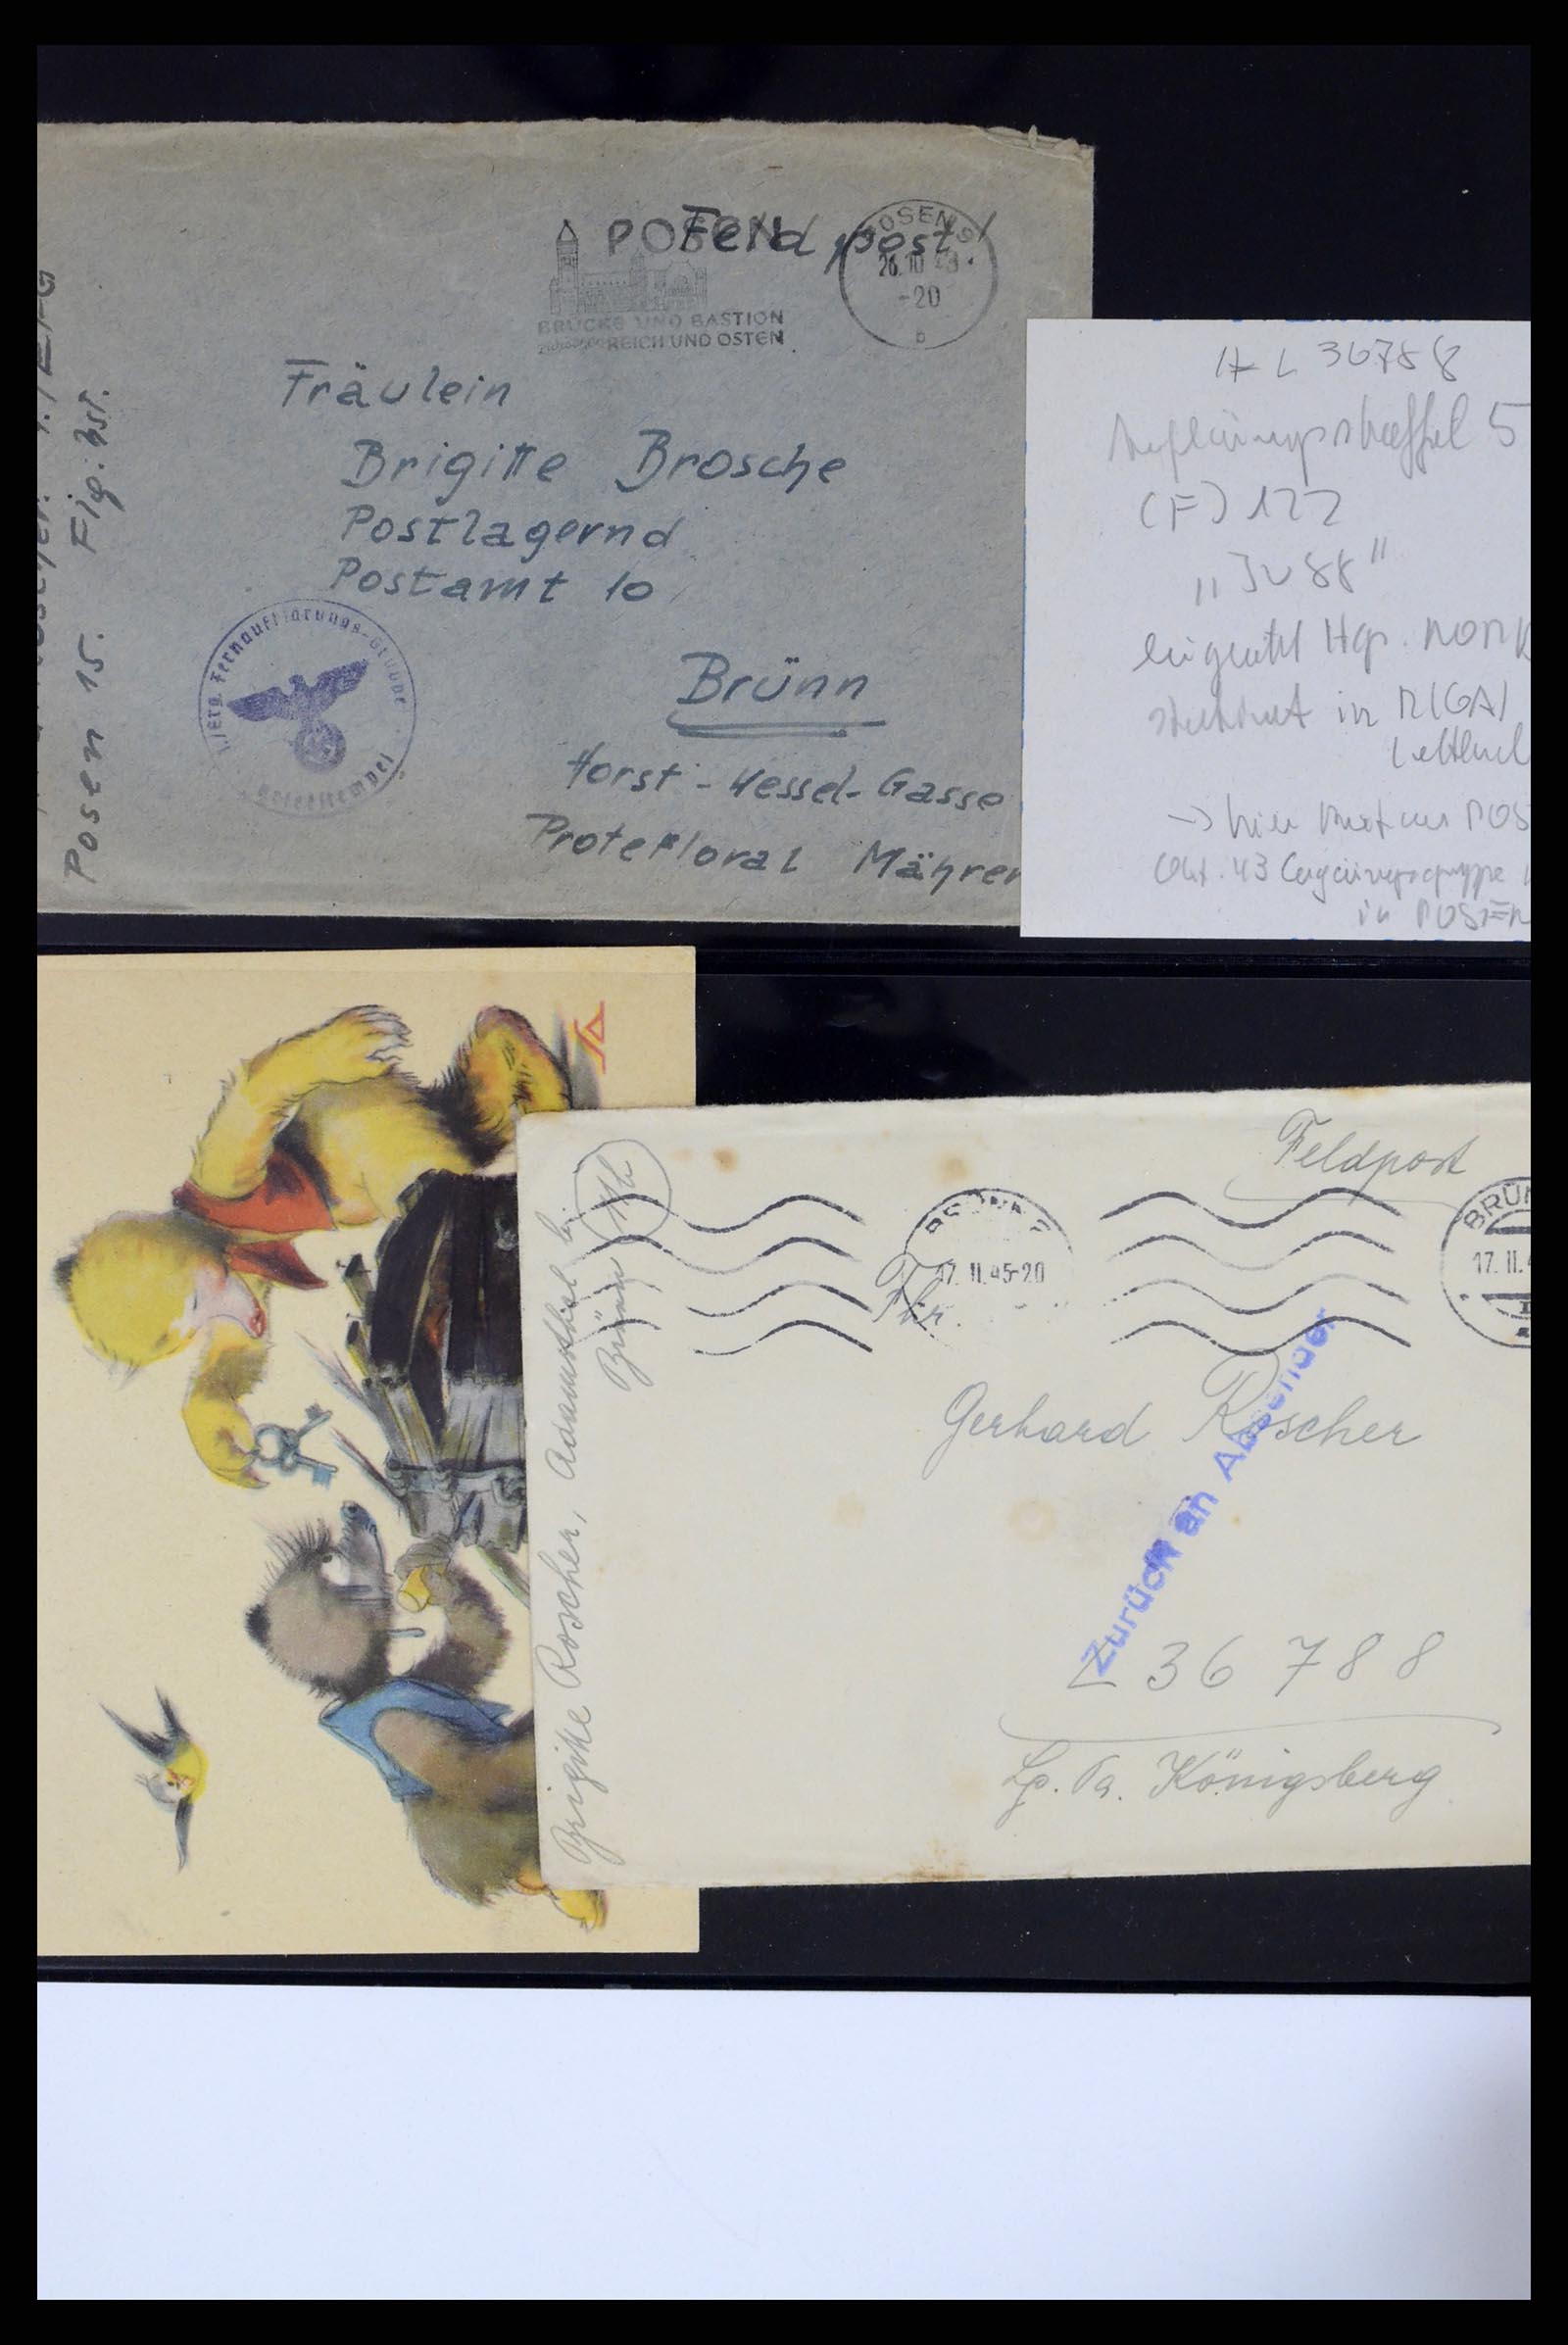 POSEN
Feldpost!
POSEN 9
26.10.43.
-20
b
BRÜCKE UND BASTION
REICH UND OSTEN
Fräulein
Brigitte Brosche
Postlagernd
Postamt 10
Brünn
Horst-Wessel-Gasse
Protektorat Mähren
Posen 15. Flg. hst.
1./Erg. Fernaufklärungs-Gruppe
Briefstempel
L 36788
Aufklärungsstaffel 5
(F) 122
"Ju 88"
in RIGA
→ hier
Okt. 43 Ergänzungsgruppe
in POSEN
Feldpost
BRÜNN
17. II. 45-20
BRÜN
17. II. 4
Fhr.
Gerhard Roscher
Zurück an Absender
L 36 788
Lg. Pa. Königsberg
Brigitte Roscher, Adamsthal b.
Brünn